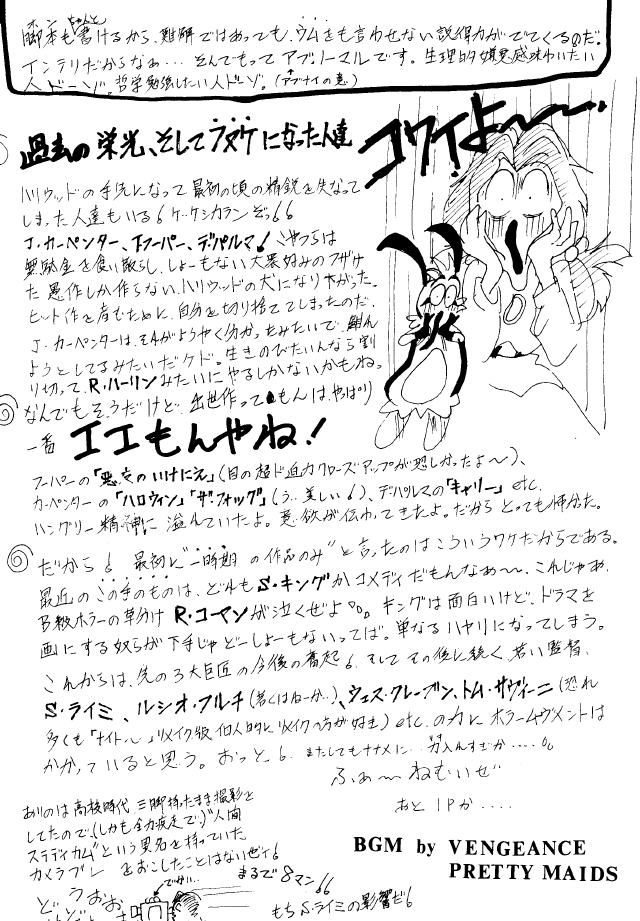 脚本も書けるから、難解ではあっても、ウムをも言わせない説得力がでてくるのだ。
インテリだからなぁ…そんでもってアブノーマルです。生理的嫌悪感味わいたい
人ドーゾ。哲学勉強したい人ドーゾ。(アブナイの意)
過去の栄光、そしてフヌケになった人達
コワイよ〜〜
ハリウッドの手先になって最初の頃の精鋭を失なって
しまった人達もいる。ケ・ケシカランぞっ!!
J・カーペンター、T・フーパー、デ・パルマ! こやつらは
無駄金を食い散らし、しょーもない大衆好みのフザけ
た愚作しか作らない、ハリウッドの犬になり下がった。
ヒット作を産むために、自分を切り捨ててしまったのだ。
J・カーペンターは、それがようやく分かったみたいで、
ようとしてるみたいだケド。生きのびたいんなら割
り切って R・ハーリンみたいにやるしかないかもね。
なんでもそうだけど、出世作ってもんは、やっぱり
一番 エエもんやね!
フーパーの「悪魔のいけにえ」(目の超ド迫力クローズアップが恐しかったよ〜)、
カーペンターの「ハロウィン」「ザ・フォッグ」(う…美しい!)、デ・パルマの「キャリー」etc.
ハングリー精神に溢れていたよ。意欲が伝わってきたよ。だからとっても怖かった。
だから! 最初に"一時期の作品のみ"と言ったのはこういうワケだからである。
最近のこの手のものは、どれもS・キングかコメディだもんなぁ〜。これじゃあ、
B級ホラーの草分け R・コーマンが泣くぜよ。キングは面白いけど、ドラマを
画にする奴らが下手じゃどーしょーもないってば。単なるハヤリになってしまう。
これからは、先の3大巨匠の今後の奮起! そしてその後に続く、若い監督、
S・ライミ、ルシオ・フルチ(若くはねーか…)、ウェス・クレーブン、トム・サヴィーニ(恐れ
多くも「ナイト〜」リメイク版 個人的にリメイクの方が好き) etc. の力にホラームーヴメントは
かかっていると思う。おっと! またしてもナナメに…力入れすぎか……。
ふぁ〜ねむいぜ
あと1Pか....
ありのは高校時代、三脚持ったまま撮影を
してたので、(しかも全力疾走で)"人間
ステディカム"という異名を持っていた
カメラブレをおこしたことはないぜィ!
まるで8マン!!
もちS・ライミの影響だ!
どうおお
BGM by VENGEANCE
PRETTY MAIDS